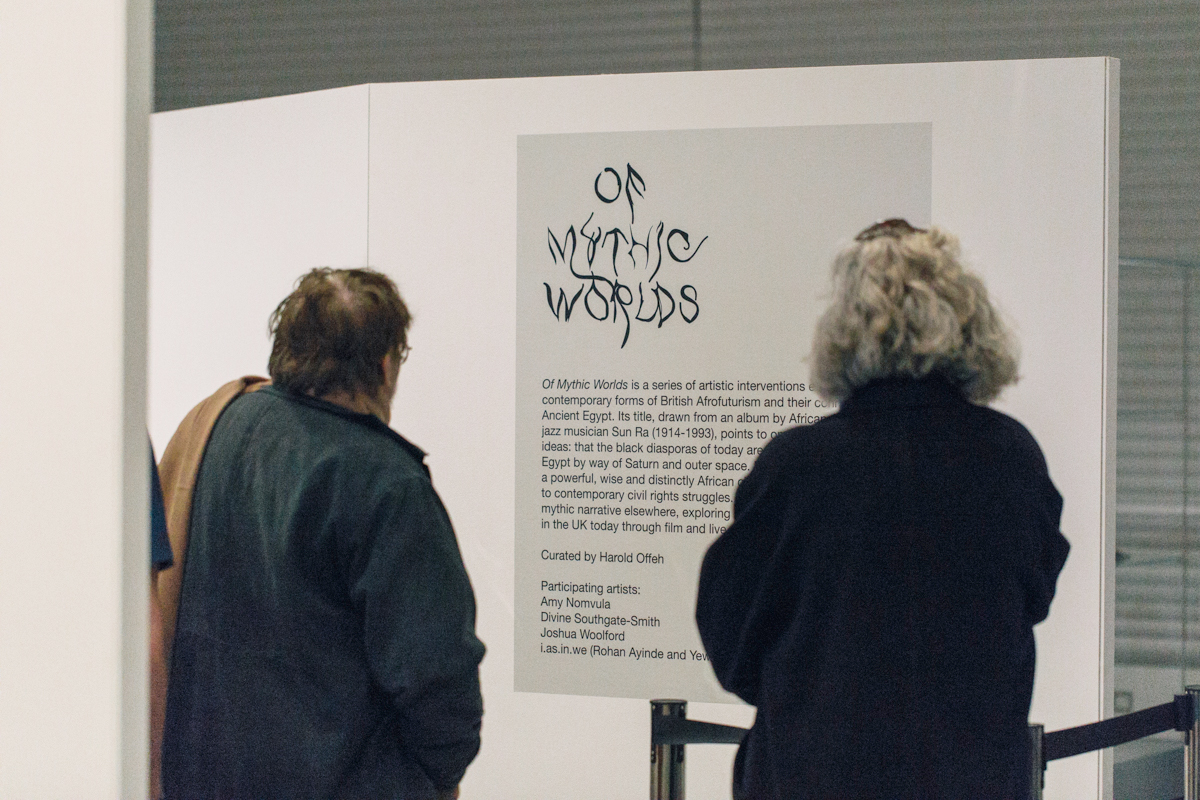 OF
MYTHIC
WORLDS
Of Mythic Worlds is a series of artistic interventions
contemporary forms of British Afrofuturism and their
Ancient Egypt. Its title, drawn from an album by
jazz musician Sun Ra (1914-1993), points to
ideas: that the black diasporas of today are
Egypt by way of Saturn and outer space.
a powerful, wise and distinctly African
to contemporary civil rights struggles.
mythic narrative elsewhere, exploring
in the UK today through film and live
Curated by Harold Offeh
Participating artists:
Amy Nomvula
Divine Southgate-Smith
Joshua Woolford
i.as.in.we (Rohan Ayinde and